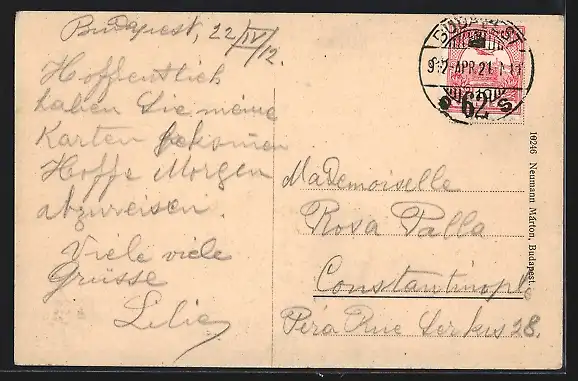 Budapest, 22/IV/12.
Hoffentlich
haben Sie meine
Karten bekommen
Hoffe Morgen
abzureisen.
Viele viele
Grüsse
Lilie
BUDAPEST
912-APR 21
62
Mademoiselle
Rosa Palla
Constantinople
Péra Rue Serkis 28.
10246 Neumann Márton, Budapest.